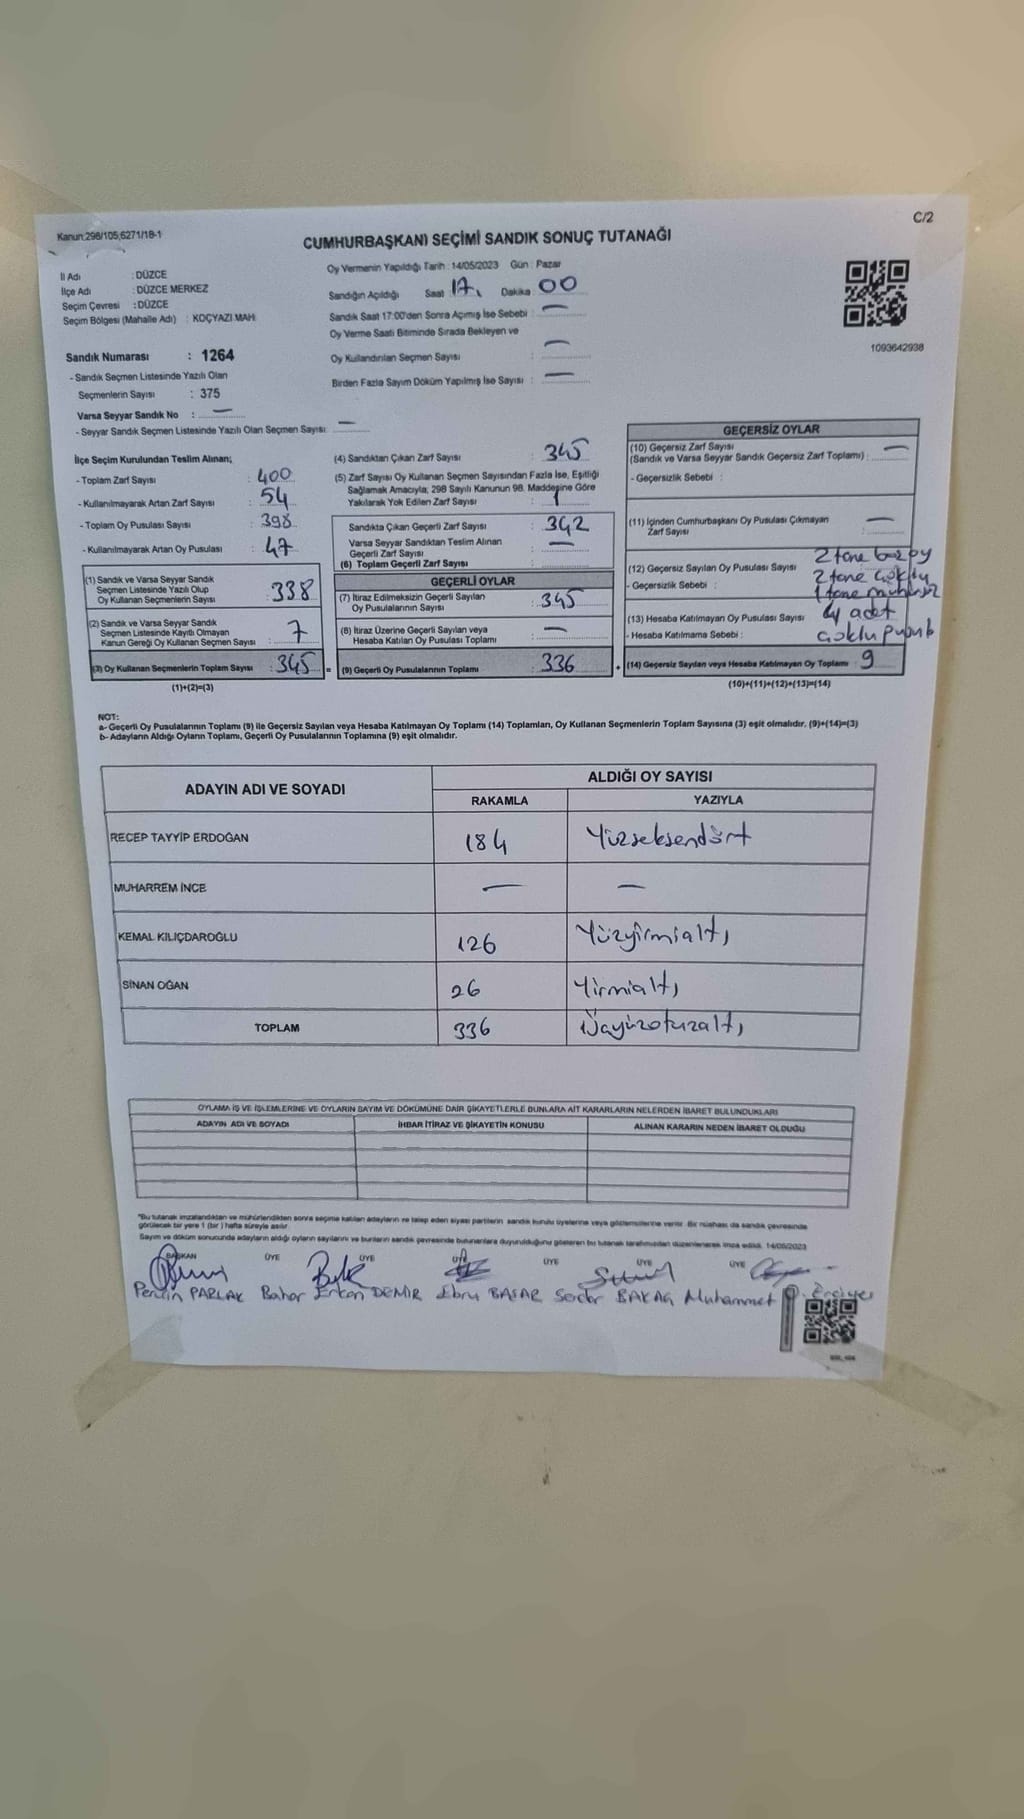 C/2
Kanun:298/105,6271/18-1
CUMHURBAŞKANI SEÇİMİ SANDIK SONUÇ TUTANAĞI
İl Adı : DÜZCE
İlçe Adı : DÜZCE MERKEZ
Seçim Çevresi : DÜZCE
Seçim Bölgesi (Mahalle Adı) : KOÇYAZI MAH
Sandık Numarası : 1264
- Sandık Seçmen Listesinde Yazılı Olan
Seçmenlerin Sayısı : 375
Varsa Seyyar Sandık No : —
- Seyyar Sandık Seçmen Listesinde Yazılı Olan Seçmen Sayısı: —
Oy Vermenin Yapıldığı Tarih : 14/05/2023 Gün : Pazar
Sandığın Açıldığı Saat 17 Dakika : 00
Sandık Saat 17:00'den Sonra Açımış İse Sebebi : —
Oy Verme Saati Bitiminde Sırada Bekleyen ve
Oy Kullandırılan Seçmen Sayısı : —
Birden Fazla Sayım Döküm Yapılmış İse Sayısı : —
1093642938
İlçe Seçim Kurulundan Teslim Alınan;
- Toplam Zarf Sayısı : 400
- Kullanılmayarak Artan Zarf Sayısı : 54
- Toplam Oy Pusulası Sayısı : 398
- Kullanılmayarak Artan Oy Pusulası : 47
(1) Sandık ve Varsa Seyyar Sandık
Seçmen Listesinde Yazılı Olup
Oy Kullanan Seçmenlerin Sayısı : 338
(2) Sandık ve Varsa Seyyar Sandık
Seçmen Listesinde Kayıtlı Olmayan
Kanun Gereği Oy Kullanan Seçmen Sayısı : 7
(3) Oy Kullanan Seçmenlerin Toplam Sayısı : 345 =
(1)+(2)=(3)
(4) Sandıktan Çıkan Zarf Sayısı : 345
(5) Zarf Sayısı Oy Kullanan Seçmen Sayısından Fazla İse, Eşitliği
Sağlamak Amacıyla, 298 Sayılı Kanunun 98. Maddesine Göre
Yakılarak Yok Edilen Zarf Sayısı : 1
Sandıkta Çıkan Geçerli Zarf Sayısı : 342
Varsa Seyyar Sandıktan Teslim Alınan
Geçerli Zarf Sayısı : —
(6) Toplam Geçerli Zarf Sayısı
GEÇERLİ OYLAR
(7) İtiraz Edilmeksizin Geçerli Sayılan
Oy Pusulalarının Sayısı : 345
(8) İtiraz Üzerine Geçerli Sayılan veya
Hesaba Katılan Oy Pusulası Toplamı : —
(9) Geçerli Oy Pusulalarının Toplamı : 336 +
GEÇERSİZ OYLAR
(10) Geçersiz Zarf Sayısı
(Sandık ve Varsa Seyyar Sandık Geçersiz Zarf Toplamı) : —
- Geçersizlik Sebebi :
(11) İçinden Cumhurbaşkanı Oy Pusulası Çıkmayan
Zarf Sayısı : —
2 tane boş oy
(12) Geçersiz Sayılan Oy Pusulası Sayısı 2 tane çoklu
- Geçersizlik Sebebi : 1 tane mühürsüz
(13) Hesaba Katılmayan Oy Pusulası Sayısı 4 adet
- Hesaba Katılmama Sebebi : çoklu
(14) Geçersiz Sayılan veya Hesaba Katılmayan Oy Toplamı : 9
(10)+(11)+(12)+(13)=(14)
NOT:
a- Geçerli Oy Pusulalarının Toplamı (9) ile Geçersiz Sayılan veya Hesaba Katılmayan Oy Toplamı (14) Toplamları, Oy Kullanan Seçmenlerin Toplam Sayısına (3) eşit olmalıdır. (9)+(14)=(3)
b- Adayların Aldığı Oyların Toplamı, Geçerli Oy Pusulalarının Toplamına (9) eşit olmalıdır.
ADAYIN ADI VE SOYADI ALDIĞI OY SAYISI
RAKAMLA YAZIYLA
RECEP TAYYİP ERDOĞAN 184 Yüzseksendört
MUHARREM İNCE — —
KEMAL KILIÇDAROĞLU 126 Yüzyirmialtı
SİNAN OĞAN 26 Yirmialtı
TOPLAM 336 Üçyüzotuzaltı
OYLAMA İŞ VE İŞLEMLERİNE VE OYLARIN SAYIM VE DÖKÜMÜNE DAİR ŞİKAYETLERLE BUNLARA AİT KARARLARIN NELERDEN İBARET BULUNDUKLARI
ADAYIN ADI VE SOYADI İHBAR İTİRAZ VE ŞİKAYETİN KONUSU ALINAN KARARIN NEDEN İBARET OLDUĞU
*Bu tutanak imzalandıktan ve mühürlendikten sonra seçime katılan adayların ve talep eden siyasi partilerin sandık kurulu üyelerine veya gözlemcilerine verilir. Bir nüshası da sandık çevresinde
görülecek bir yere 1 (bir) hafta süreyle asılır.
Sayım ve döküm sonucunda adayların aldığı oyların sayılarını ve bunların sandık çevresinde bulunanlara duyurulduğunu gösteren bu tutanak tarafımızdan düzenlenerek imza edildi. 14/05/2023
BAŞKAN ÜYE ÜYE ÜYE ÜYE ÜYE ÜYE
PARLAK Bahar Erkan DEMİR Ebru BAŞAR Serdar Muhammet